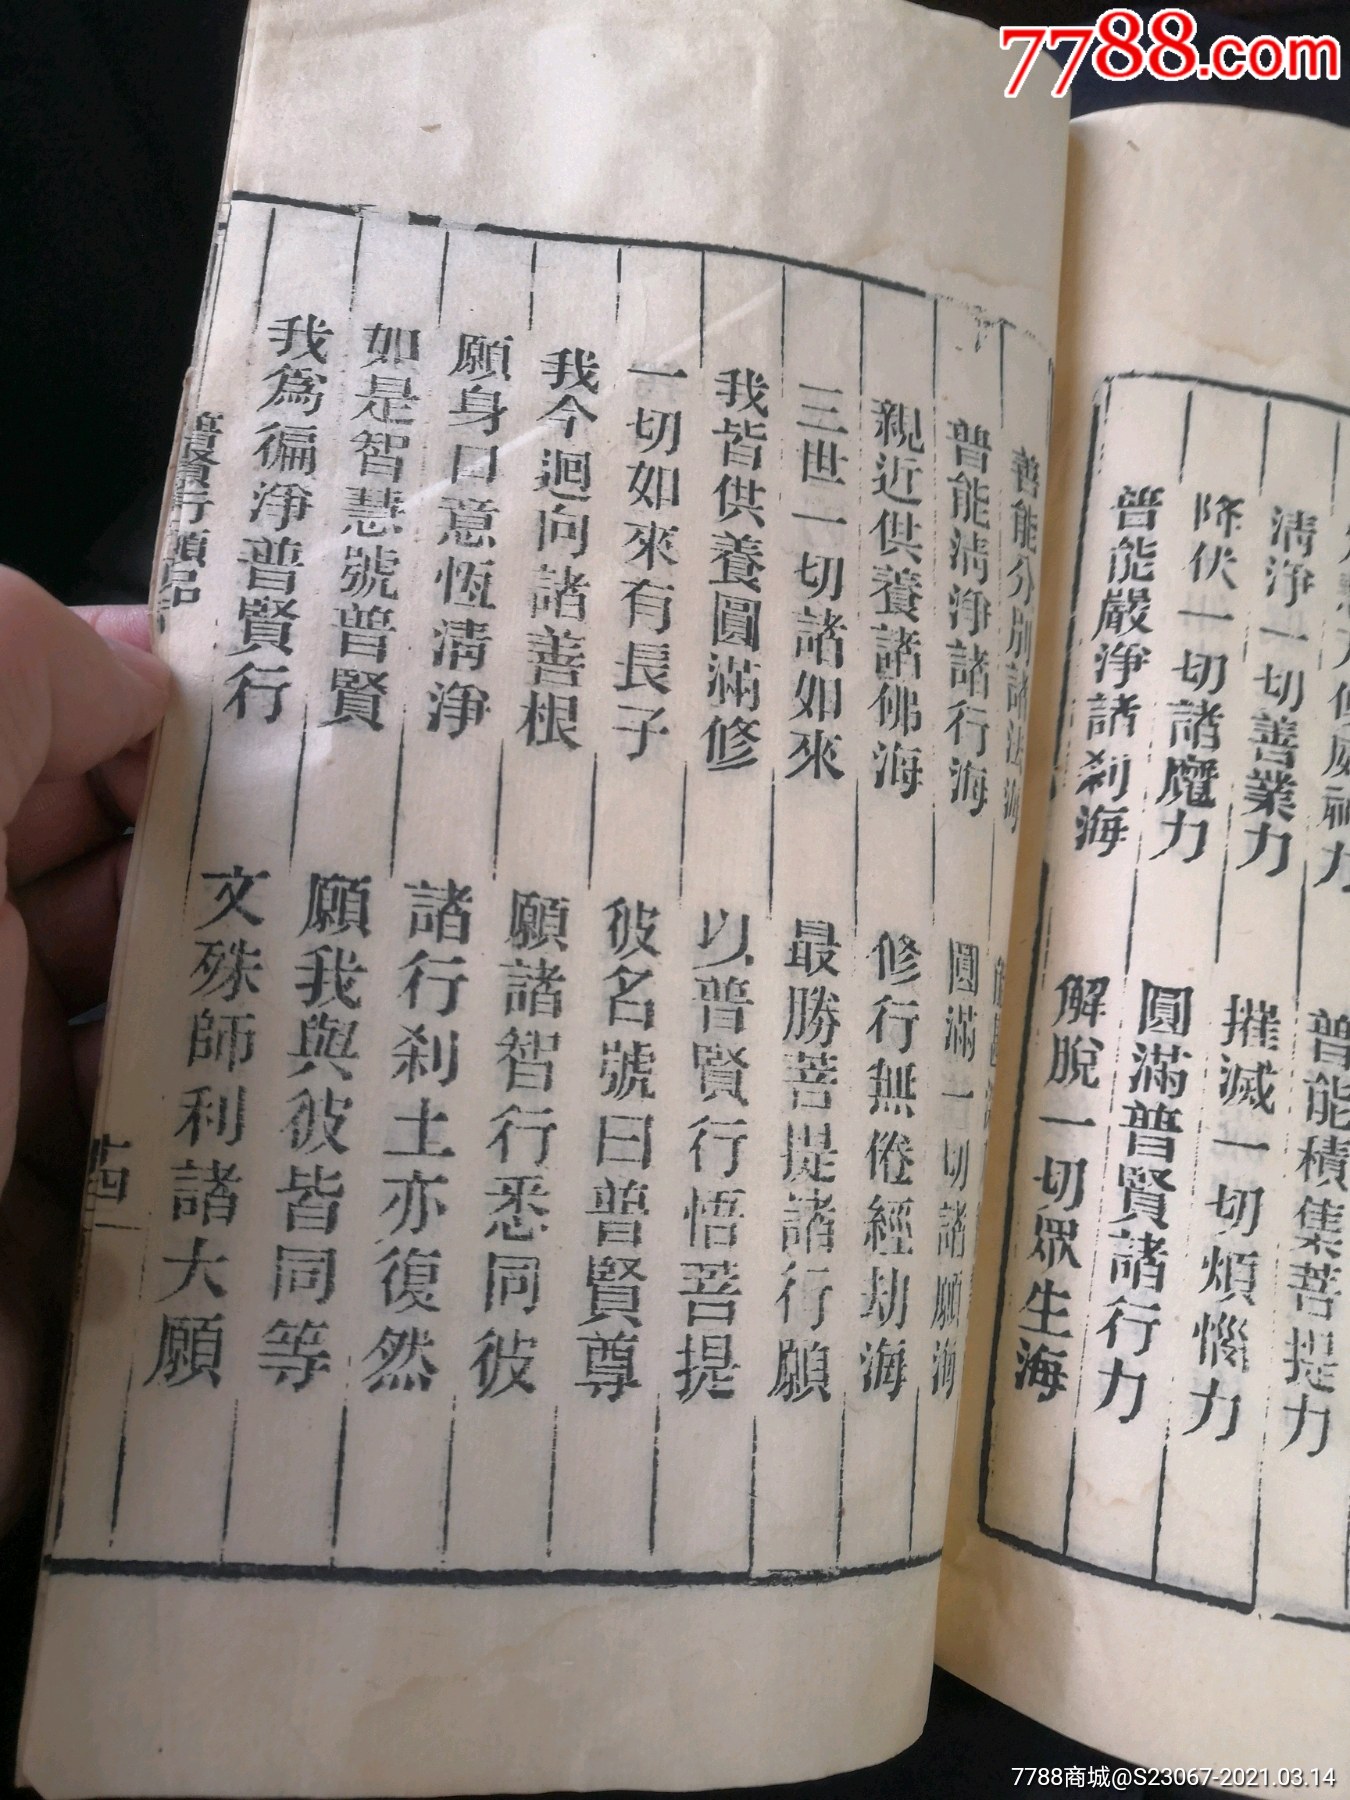 慧方便威神力　普能積集菩提力
清淨一切善業力　摧滅一切煩惱力
降伏一切諸魔力　圓滿普賢諸行力
普能嚴淨諸剎海　解脫一切眾生海
善能分別諸法海
普能清淨諸行海　圓滿一切諸願海
親近供養諸佛海　修行無倦經劫海
三世一切諸如來　最勝菩提諸行願
我皆供養圓滿修　以普賢行悟菩提
一切如來有長子　彼名號曰普賢尊
我今迴向諸善根　願諸智行悉同彼
願身口意恆清淨　諸行剎土亦復然
如是智慧號普賢　願我與彼皆同等
我為徧淨普賢行　文殊師利諸大願
普賢行願品　十四
7788.com
7788商城@S23067-2021.03.14